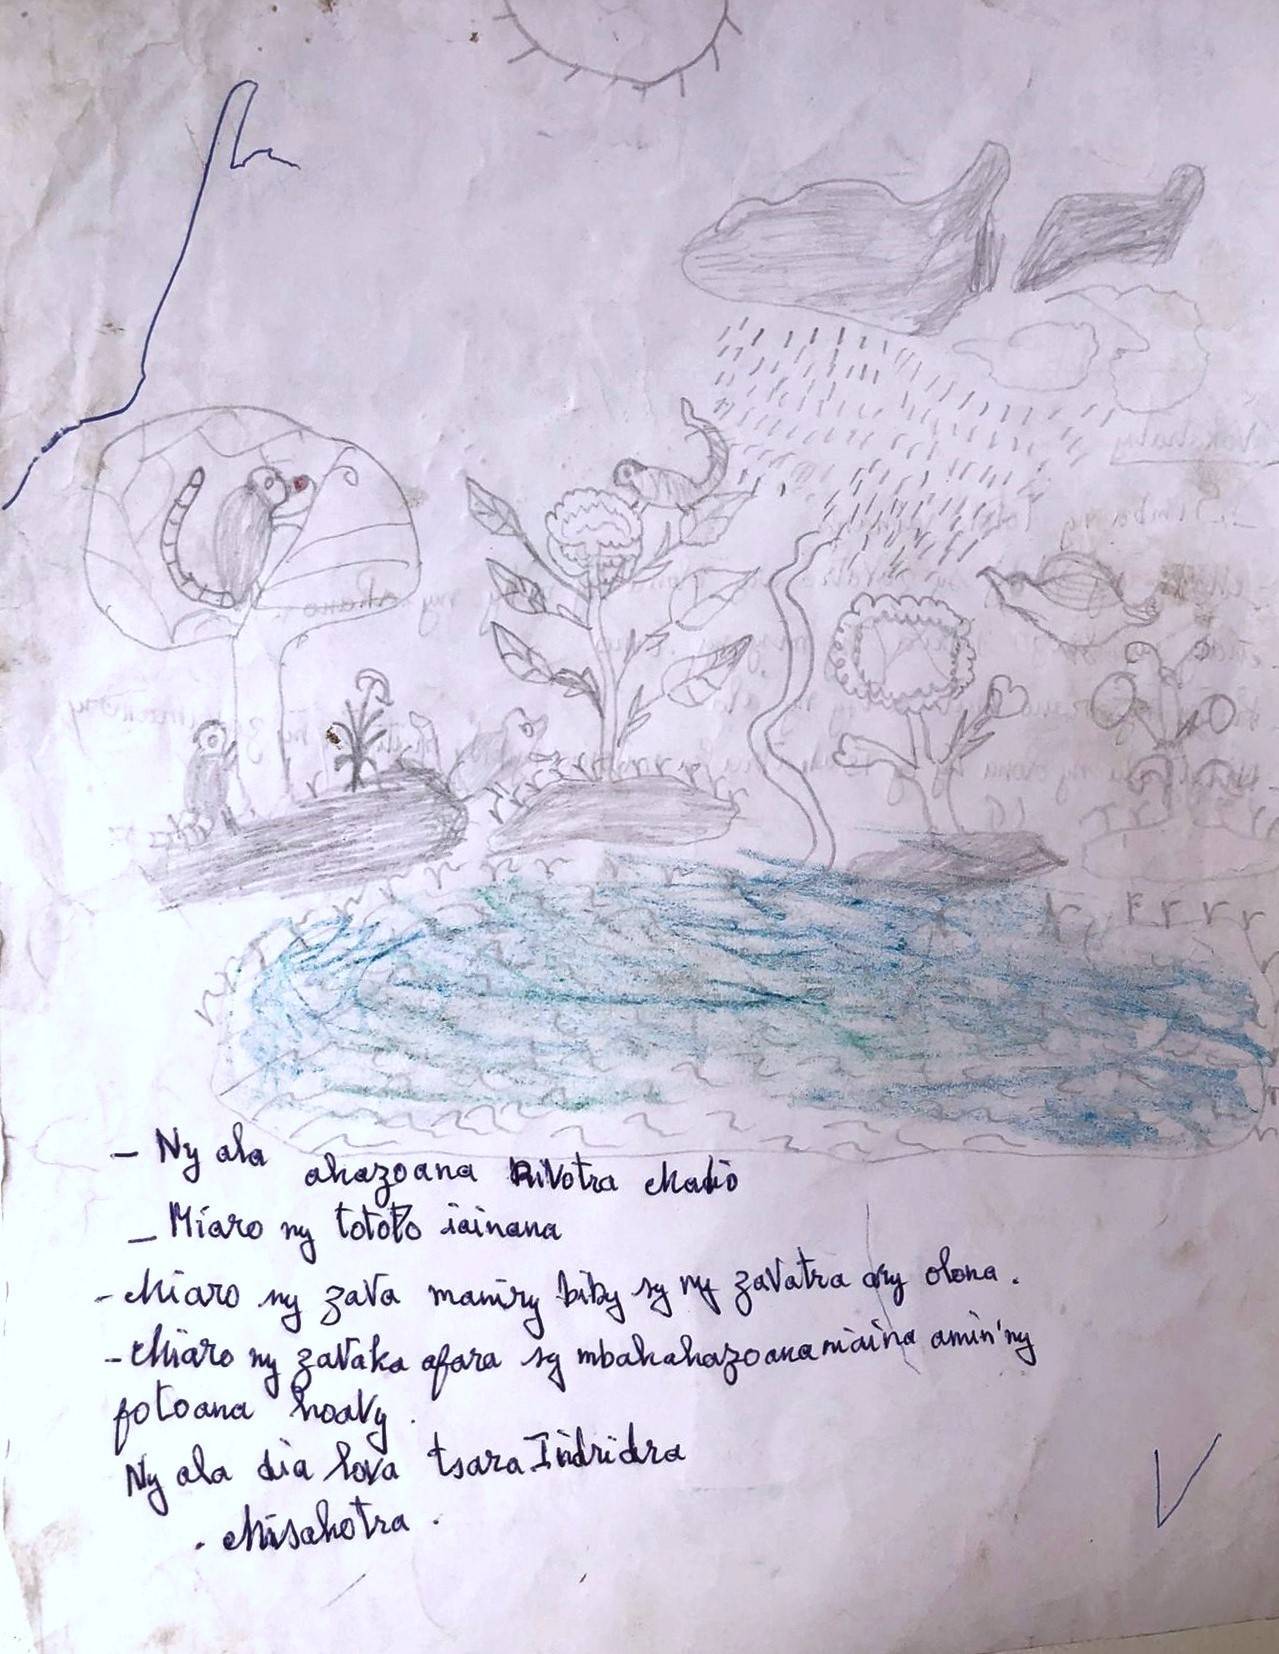 - Ny ala ahazoana Rivotra Madio
- Miaro ny tototo iainana
- Miaro ny zava maniry biby sy ny zavatra ary olona.
- Miaro ny zavaka afara sy mbahahazoana miaina amin'ny
fotoana hoavy.
Ny ala dia lova tsara Indrindra
. Misahotra.